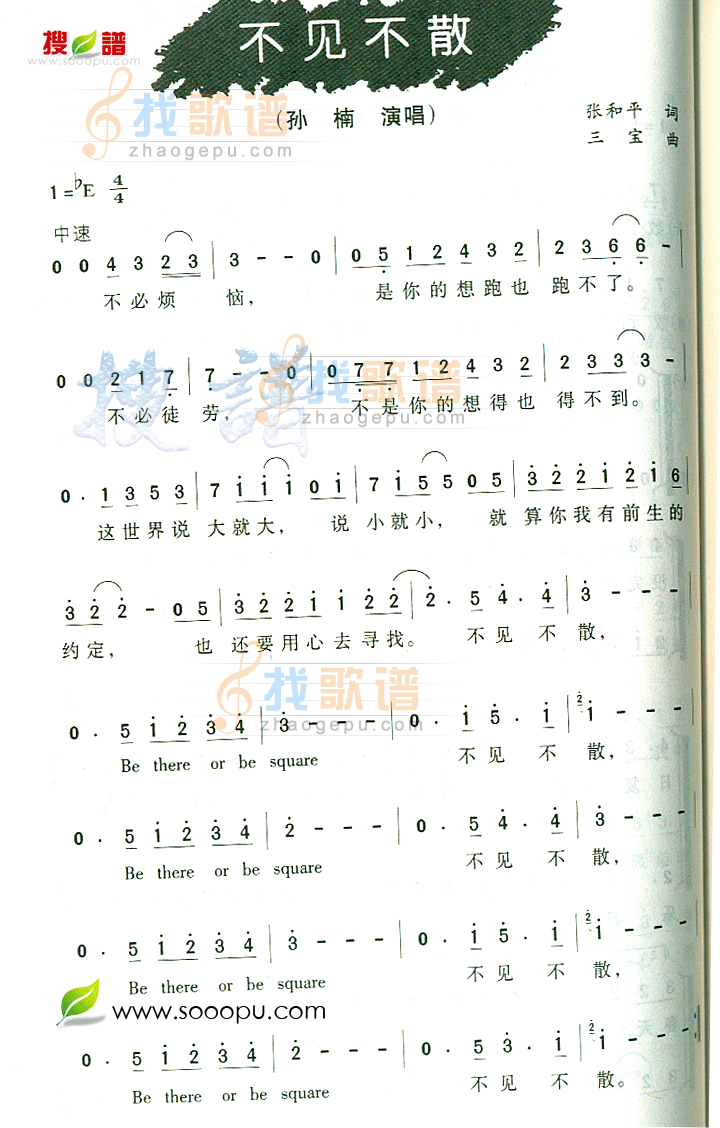 搜谱
www.sooopu.com
不见不散
找歌谱
zhaogepu.com
(孙 楠 演唱)
张和平 词
三 宝 曲
1=♭E 4/4
中速
0 0 4 3 2 3 | 3 - - 0 | 0 5 1 2 4 3 2 | 2 3 6 6 - |
不必烦 恼, 是你的想跑也 跑不了。
0 0 2 1 7 | 7 - - 0 | 0 7 7 1 2 4 3 2 | 2 3 3 3 - |
搜谱
找歌谱
zhaogepu.com
不必徒 劳, 不是你的想得也 得不到。
0 · 1 3 5 3 | 7 i i i 0 i | 7 i 5 5 0 5 | 3 2 2 i 2 i 6
这世界说 大就大, 说 小就小, 就 算你我有前生的
3 2 2 - 0 5 | 3 2 2 i i 2 2 | 2 · 5 4 · 4 | 3 - - - |
约定, 也 还要用心去寻找。 不见 不 散,
找歌谱
zhaogepu.com
0 · 5 i 2 3 4 | 3 - - - | 0 · i 5 · i | 2 i - - - |
Be there or be square 不见 不 散,
0 · 5 i 2 3 4 | 2 - - - | 0 · 5 4 · 4 | 3 - - - |
Be there or be square 不见 不 散,
0 · 5 i 2 3 4 | 3 - - - | 0 · i 5 · i | 2 i - - - |
Be there or be square 不见 不 散,
www.sooopu.com
0 · 5 i 2 3 4 | 2 - - - | 0 · 5 3 · i | 2 i - - - :|
Be there or be square 不见 不 散。